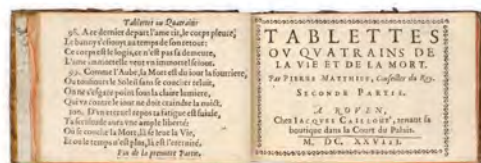 Tablettes ou Quatrains
98. A ce dernier depart l'ame rit, le corps pleure,
Le banny s'esiouyt au temps de son retour:
Ce corps est le logis, ce n'est pas sa demeure,
L'ame immortelle veut un immortel seiour.
99. Comme l'Aube, la Mort est du iour la fourriere,
Où tousiours le Soleil sans se coucher reluit,
On ne s'esgare point sous la claire lumiere,
Qui va contre le iour ne doit craindre la nuict.
100. D'un eternel repos ta fatigue est suivie,
Ta servitude aura une ample liberté:
Où se couche la Mort, là se leve la Vie,
Et où le temps n'est plus, là est l'eternité.
Fin de la premiere Partie.
TABLETTES
OV QVATRAINS DE
LA VIE ET DE LA MORT.
Par PIERRE MATTHIEV, Conseiller du Roy.
SECONDE PARTIE.
A ROVEN,
Chez IACQVES CAILLOVÉ, tenant sa
boutique dans la Court du Palais.
M. DC. XXVIII.